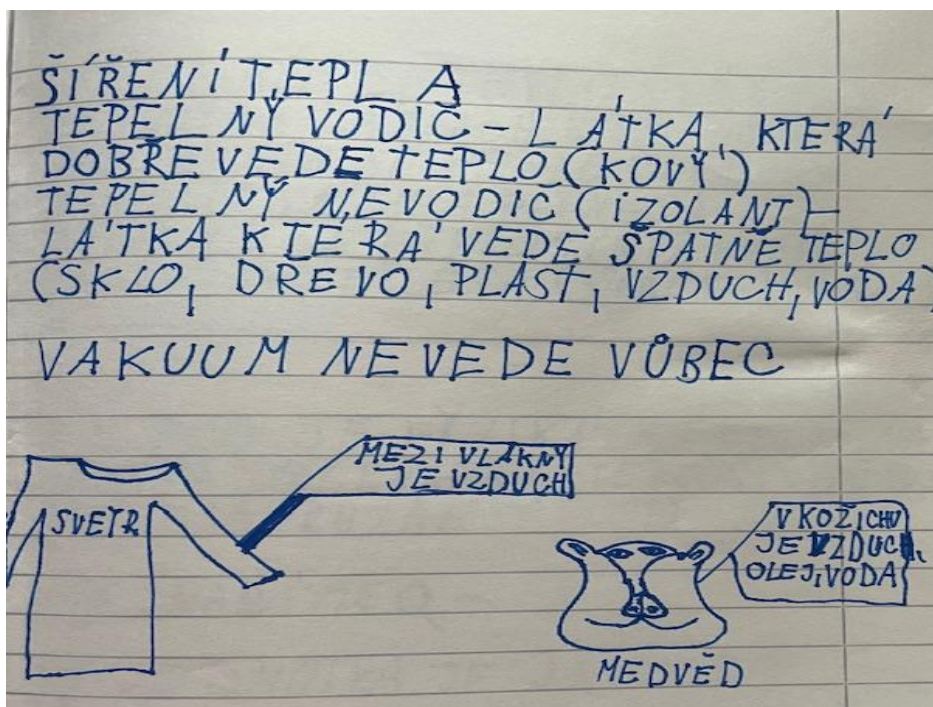 ŠÍŘENÍ TEPLA
TEPELNÝ VODIČ – LÁTKA, KTERÁ
DOBŘE VEDE TEPLO (KOVY)
TEPELNÝ NEVODIČ (IZOLANT) –
LÁTKA KTERÁ VEDE ŠPATNĚ TEPLO
(SKLO, DŘEVO, PLAST, VZDUCH, VODA)
VAKUUM NEVEDE VŮBEC
MEZI VLÁKNY
JE VZDUCH
SVETR
V KOŽICHU
JE VZDUCH,
OLEJ, VODA
MEDVĚD